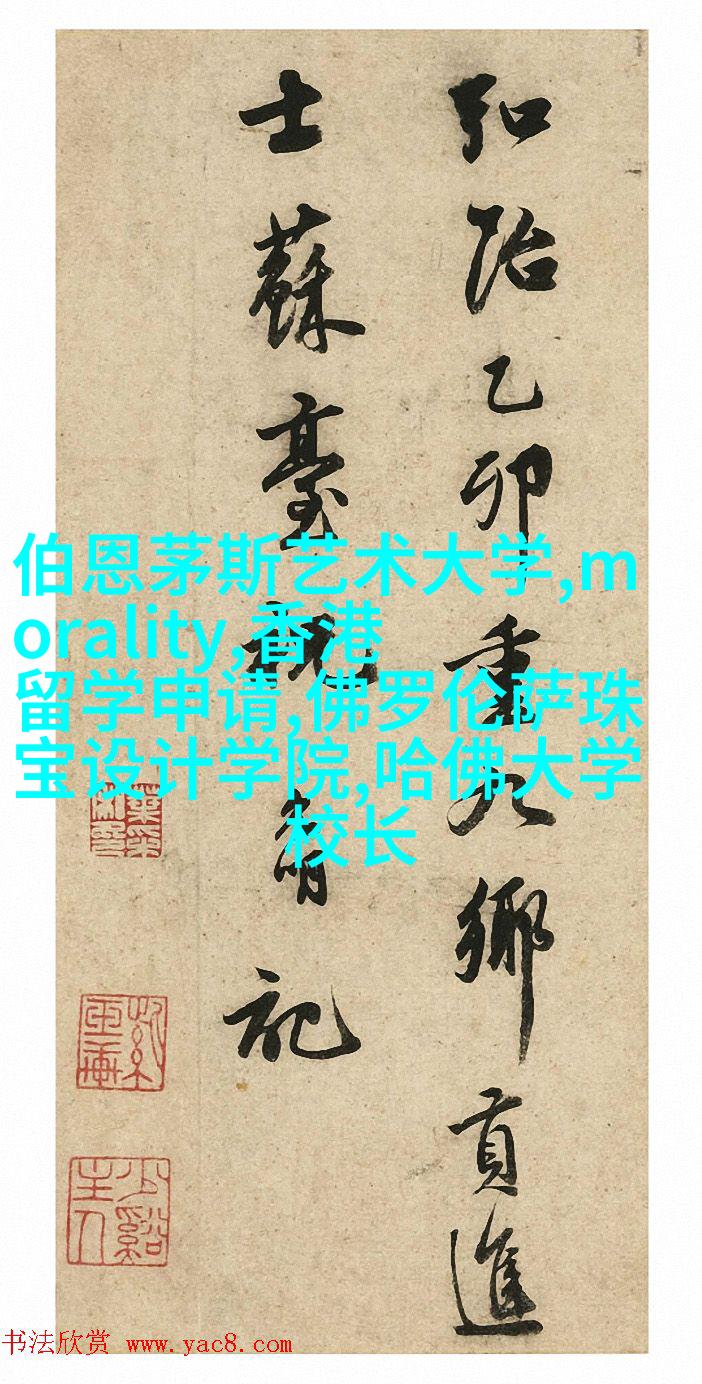 弘治乙卯重九鄉貢進
士蘇臺祝允明記
伯恩茅斯艺术大学,m
orality,香港
留学申请,佛罗伦萨珠
宝设计学院,哈佛大学
校长
少谿主人
书法欣赏 www.yac8.com